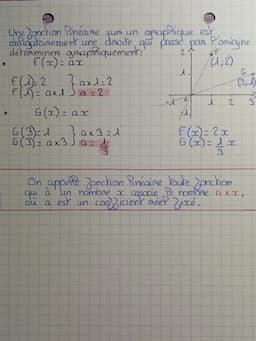 Une fonction linéaire sur un graphique est
obligatoirement une droite qui passe par l'origine
déterminer graphiquement:
• F(x) = ax
F(1) = 2 } a x 1 = 2
F(1) = a x 1 } a = 2
• G(x) = ax
G(3) = 1 } a x 3 = 1
G(3) = a x 3 } a = 1/3
2 F
(1,2)
1 G
(3,1)
-1 1 2 3
-1
F(x) = 2x
G(x) = 1/3 x
On appelle fonction linéaire toute fonction
qui à un nombre x associe le nombre a x x,
où a est un coefficient réel fixé.